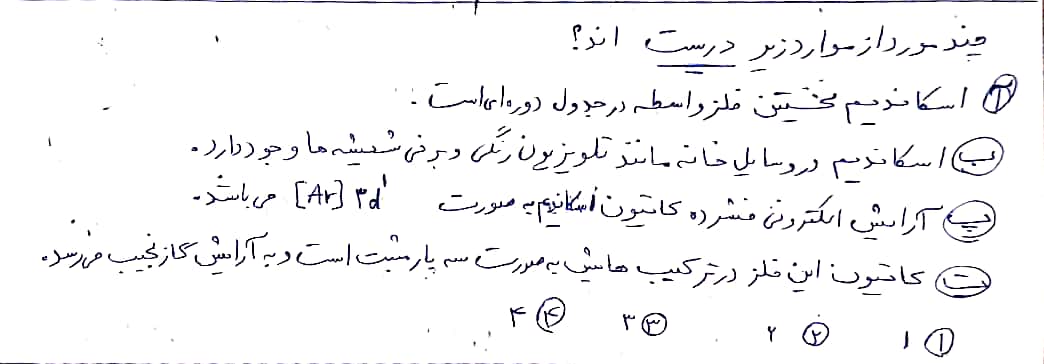 چند مورد از موارد زیر درست اند؟
آ) اسکاندیم نخستین فلز واسطه در جدول دوره‌ای است.
ب) اسکاندیم در وسایل خانه مانند تلویزیون رنگی و برخی شیشه ها وجود دارد.
پ) آرایش الکترونی فشرده کاتیون اسکاندیم به صورت [Ar] ۳d¹ می باشد.
ت) کاتیون این فلز در ترکیب هایش به صورت سه بار مثبت است و به آرایش گاز نجیب می رسد.
۱) ۱ ۲) ۲ ۳) ۳ ۴) ۴